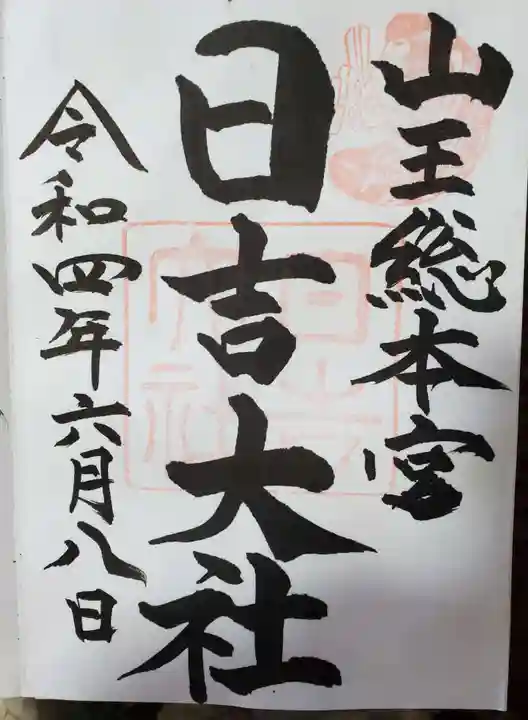 山王総本宮
日吉大社
令和四年六月八日
日吉大社